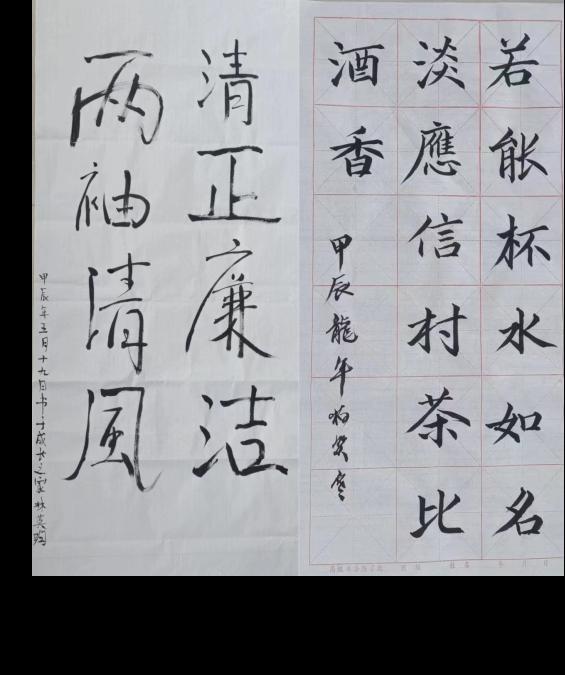 若能杯水如名
淡應信村茶比
酒香
甲辰龍年
清正廉洁
两袖清風
甲辰年五月十九日书于成长之家林英